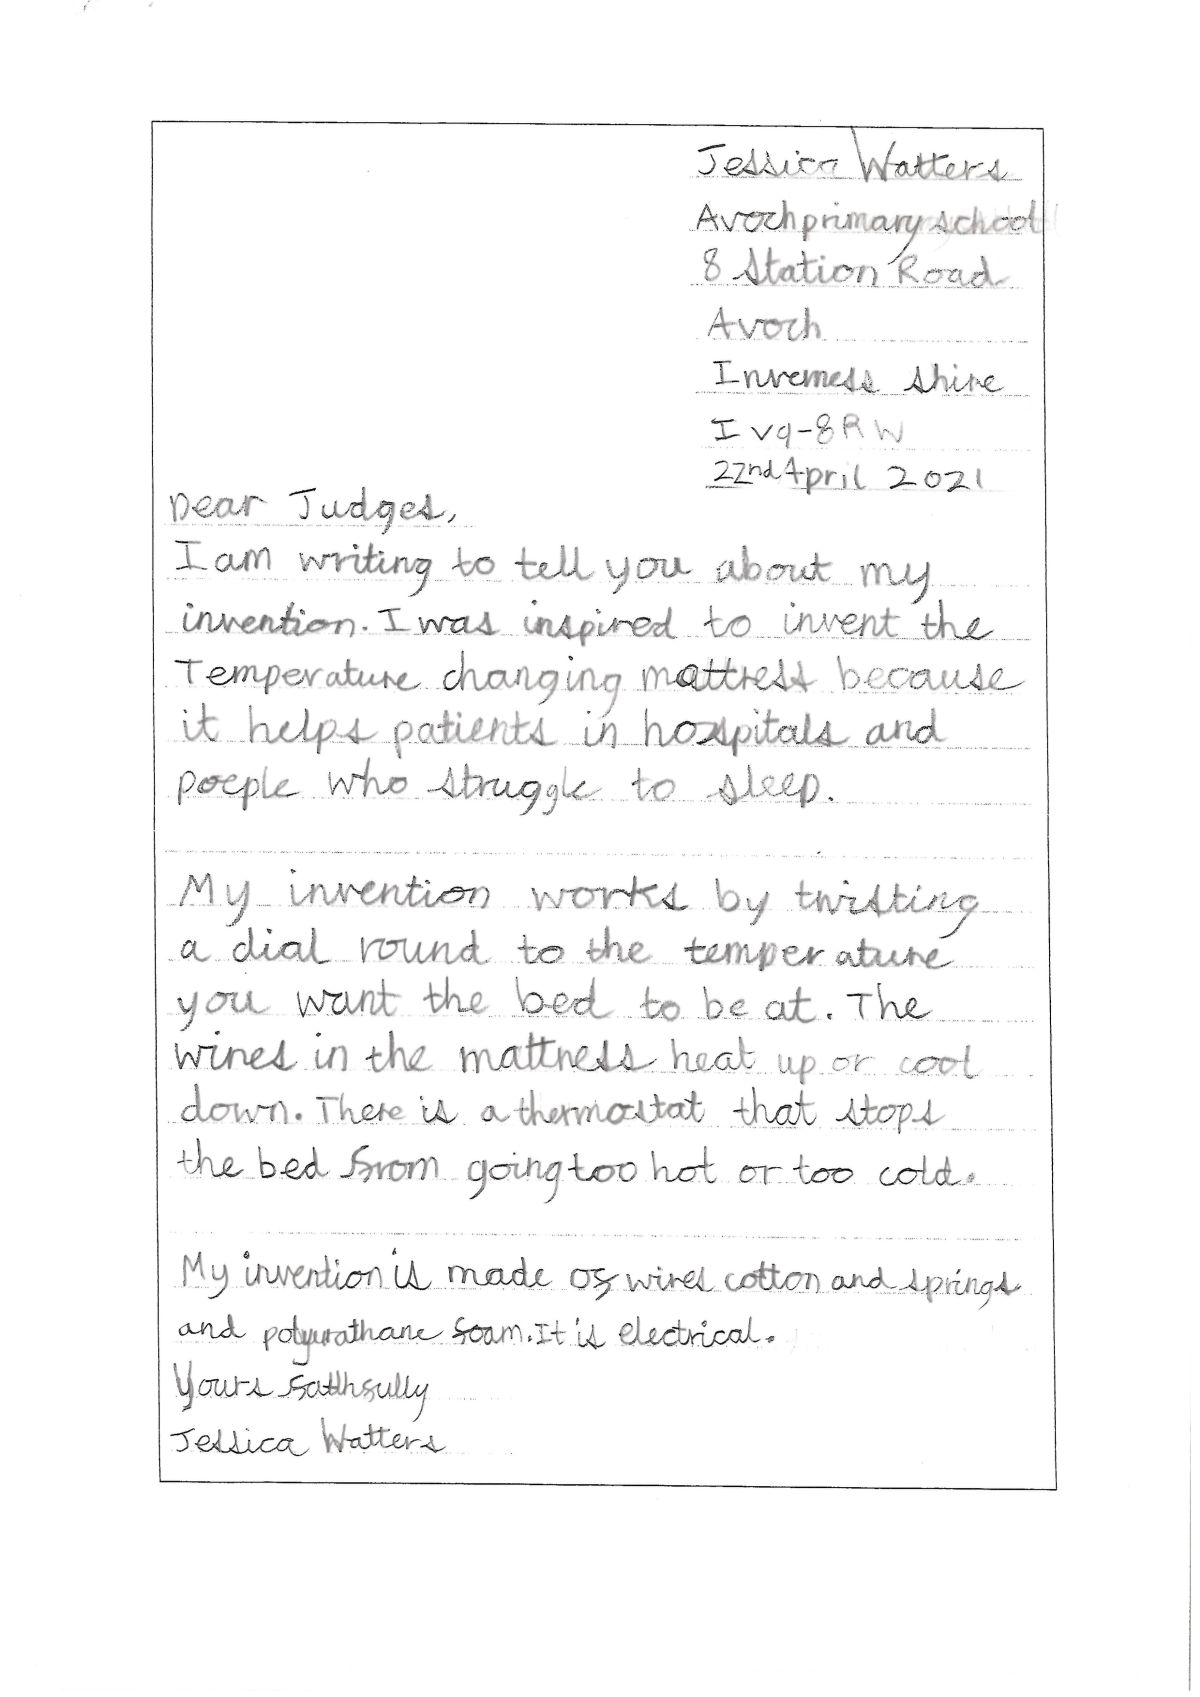 Jessica Watters
Avoch primary school
8 Station Road
Avoch
Inverness shire
Iv9-8RW
22nd April 2021
Dear Judges,
I am writing to tell you about my
invention. I was inspired to invent the
Temperature changing mattress because
it helps patients in hospitals and
poeple who struggle to sleep.
My invention works by twisting
a dial round to the temperature
you want the bed to be at. The
wires in the mattress heat up or cool
down. There is a thermostat that stops
the bed from going too hot or too cold.
My invention is made of wires cotton and springs
and polyurathane foam. It is electrical.
Yours faithfully
Jessica Watters